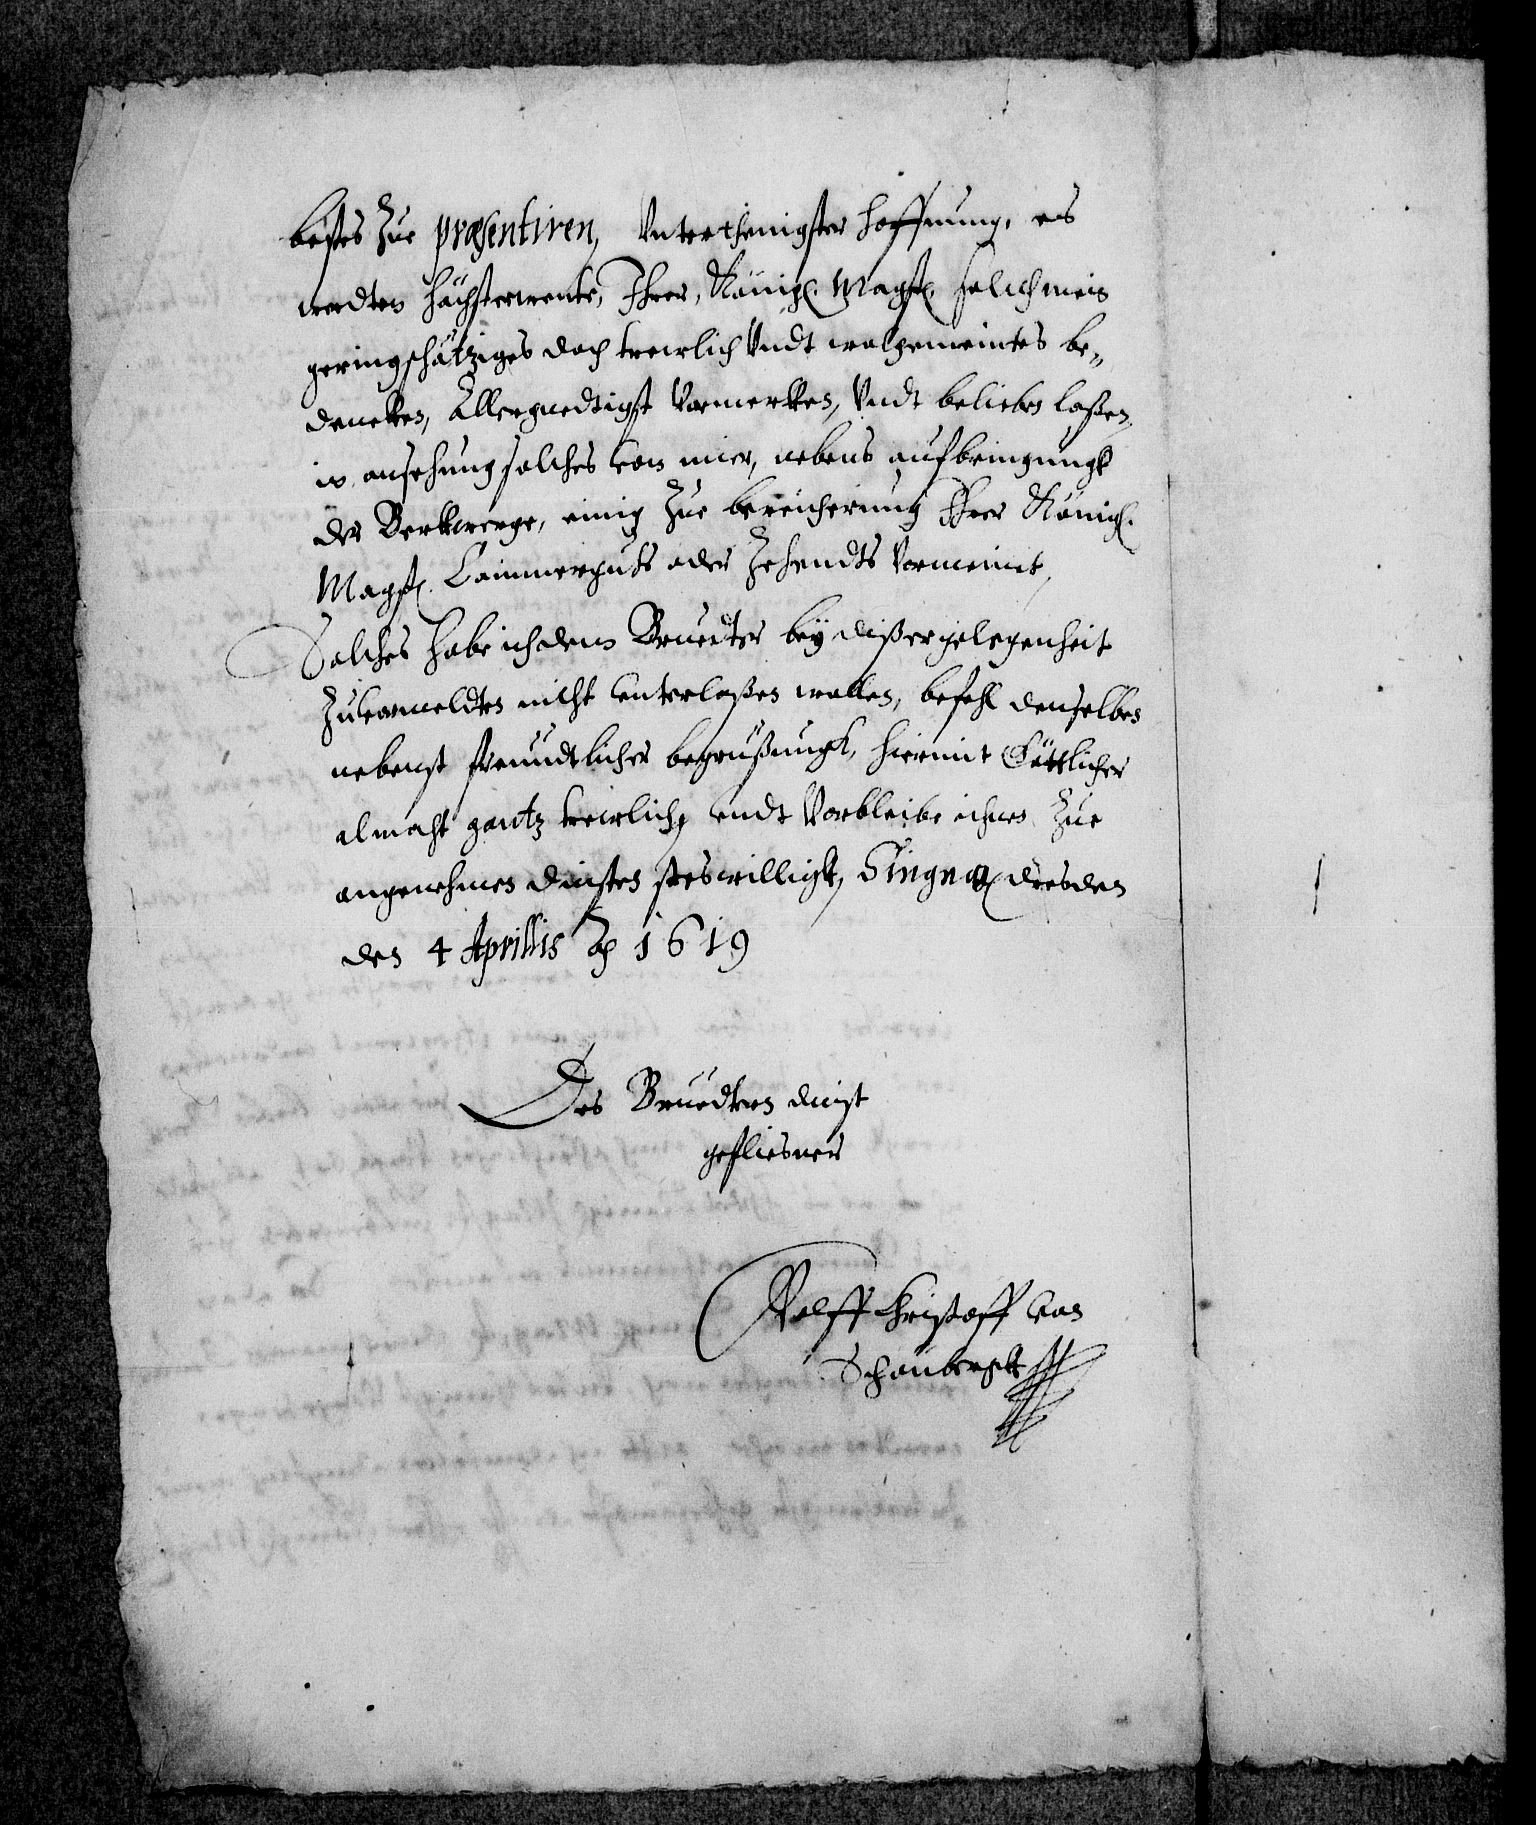 bestes Zue præsentiren, Vnterthenigster hoffnung, es
werdten höchsternente, Ihrer, Königl. Mayst. solich mein
geringschätziges doch trewlich Vndt wolgemeintes be„
dencken, Allergnedtigst Vormercken, Vndt belieben laßen,
in ansehung solches von mier, nebens aufbringungk
der Berkwerge, einig Zue bereicherung Ihrer Königl.
Mayst. Cammerguts oder Zehendts Vormeint,
Solches habe ich dem Bruedter beÿ dißer gelegenheit
Zuvormeldten nicht vnterlaßen wollen, befehl denselben
nebenst freundtlicher begrüßungk, hiermit Göttlicher
almacht gantz trewlich, vndt Vorbleibe ihnen Zue
angenehmen dinsten stes willigk, Singnat dresden
den 4 Aprillis Ao 1619
Des Bruedtern dinst
gefliesner
Wolff Christoff von
Schönbergk